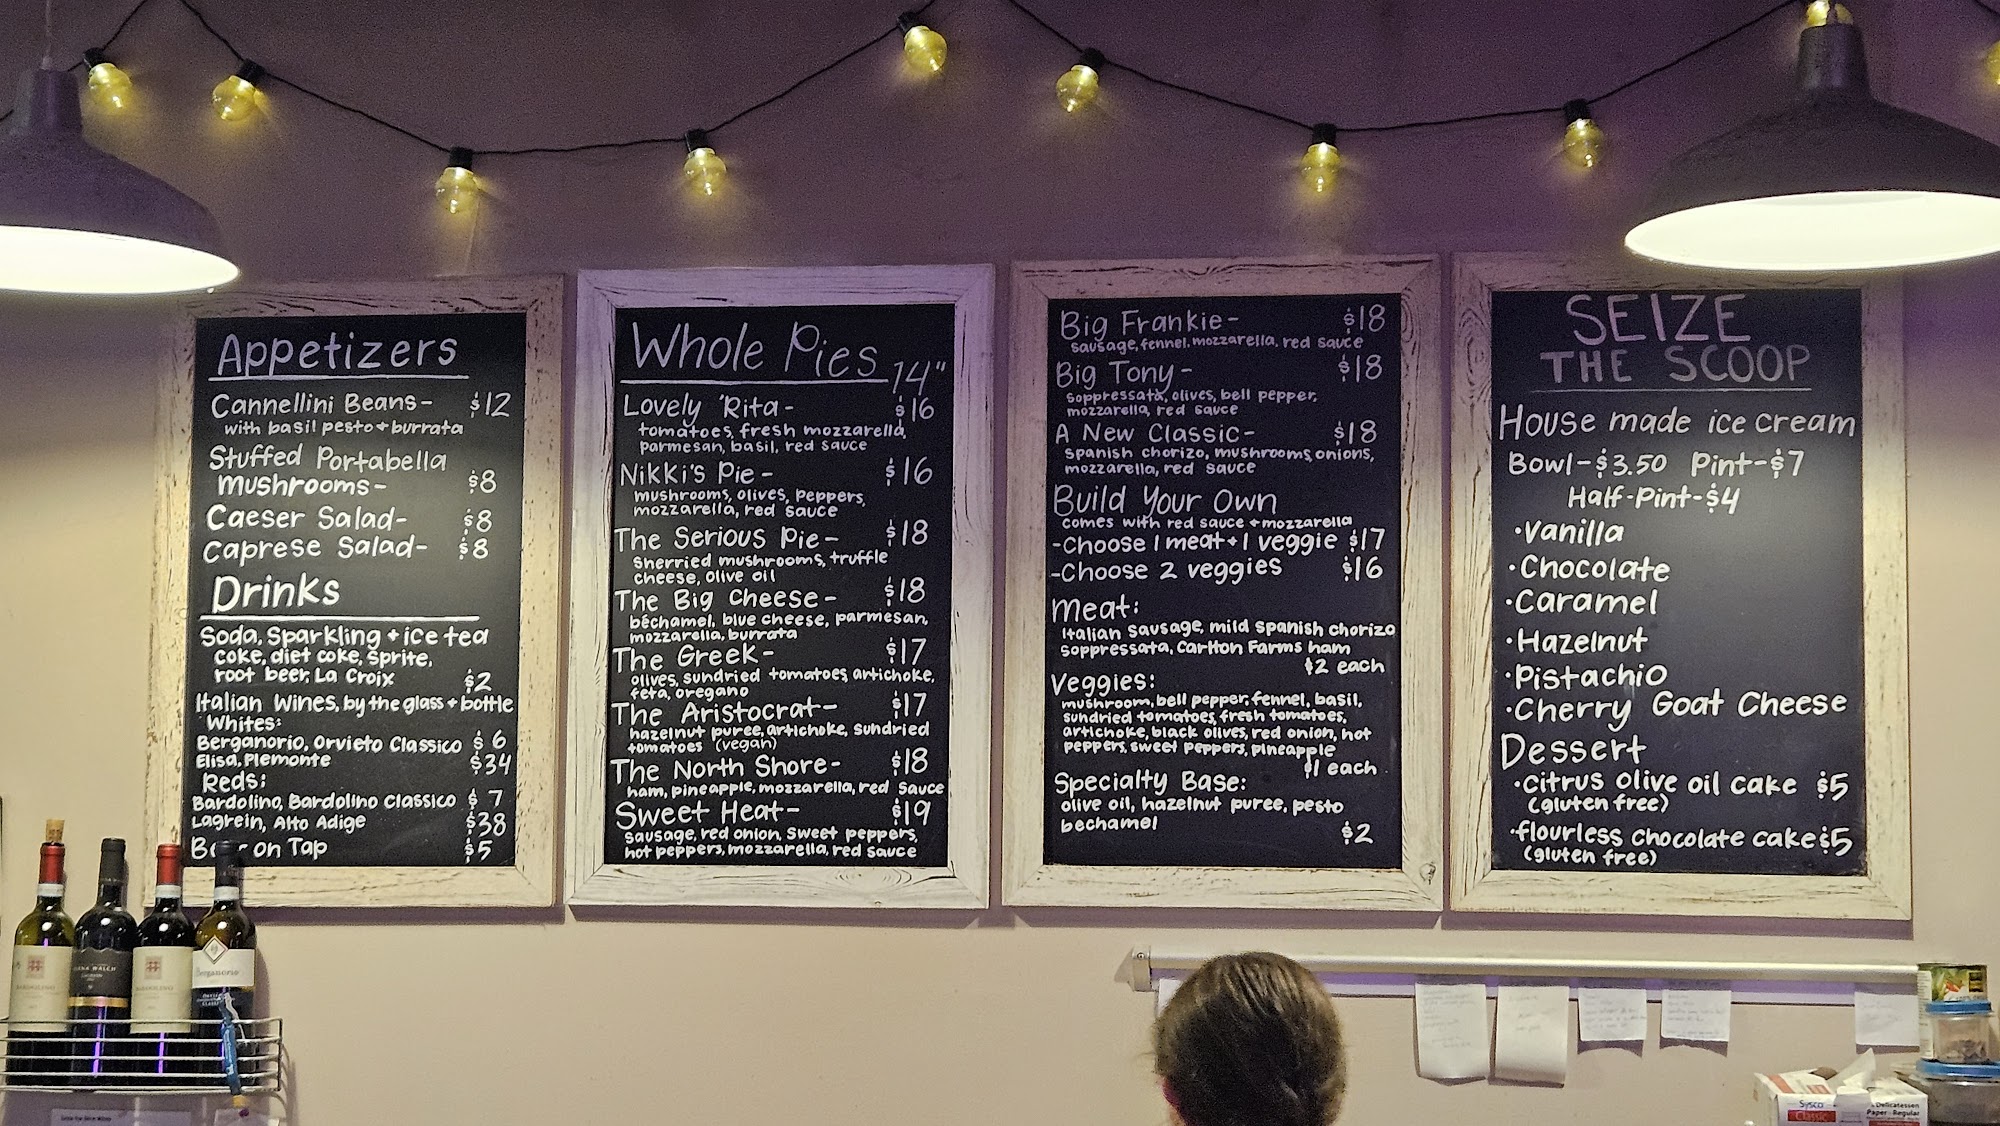 Appetizers
Cannellini Beans- $12
with basil pesto + burrata
Stuffed Portabella
Mushrooms- $8
Caeser Salad- $8
Caprese Salad- $8
Drinks
Soda, Sparkling + ice tea
coke, diet coke, sprite,
root beer, La Croix $2
Italian Wines, by the glass + bottle
Whites:
Berganorio, Orvieto Classico $6
Elisa, Piemonte $34
Reds:
Bardolino, Bardolino Classico $7
Lagrein, Alto Adige $38
on Tap $5
Whole Pies 14"
Lovely 'Rita- $16
tomatoes, fresh mozzarella,
parmesan, basil, red sauce
Nikki's Pie- $16
mushrooms, olives, peppers,
mozzarella, red sauce
The Serious Pie- $18
sherried mushrooms, truffle
cheese, olive oil
The Big Cheese- $18
béchamel, blue cheese, parmesan,
mozzarella, burrata
The Greek- $17
olives, sundried tomatoes, artichoke,
feta, oregano
The Aristocrat- $17
hazelnut puree, artichoke, sundried
tomatoes (vegan)
The North Shore- $18
ham, pineapple, mozzarella, red sauce
Sweet Heat- $19
sausage, red onion, sweet peppers,
hot peppers, mozzarella, red sauce
Big Frankie- $18
sausage, fennel, mozzarella, red sauce
Big Tony- $18
soppressata, olives, bell pepper,
mozzarella, red sauce
A New Classic- $18
spanish chorizo, mushrooms, onions,
mozzarella, red sauce
Build Your Own
comes with red sauce + mozzarella
-Choose 1 meat + 1 veggie $17
-Choose 2 veggies $16
Meat:
Italian sausage, mild spanish chorizo
soppressata, Carlton Farms ham
$2 each
Veggies:
mushroom, bell pepper, fennel, basil,
sundried tomatoes, fresh tomatoes,
artichoke, black olives, red onion, hot
peppers, sweet peppers, pineapple
$1 each
Specialty Base:
olive oil, hazelnut puree, pesto
bechamel
$2
SEIZE
THE SCOOP
House made ice cream
Bowl-$3.50 Pint-$7
Half-Pint-$4
·Vanilla
·Chocolate
·Caramel
·Hazelnut
·Pistachio
·Cherry Goat Cheese
Dessert
·Citrus olive oil cake $5
(gluten free)
·flourless chocolate cake $5
(gluten free)
Berganorio
Sysco
Classic
Delicatessen
Paper - Regular